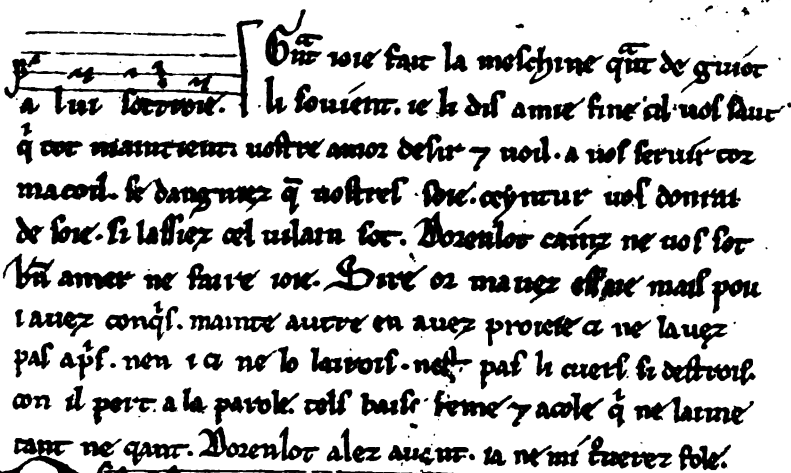 Gnt ioie fait la meschine qnt de guiot
a lui sottroie. li souient. ie li dis amie fine cil uos saut
q tot maintient. uostre amor desir ⁊ uoil. a uos seruir tot
macoil. se dangniez q̄ uostres soie. ceyntur uos donrai
de soie. si lassiez cel uilain sot. Dorenlot cainz ne uos sot
bn̄ amer ne faire ioie. Sire or mauez mais pou
i auez conqis. mainte autre en auez proiete ci ne lauez
pas aps. nen i ci ne lo lairois. nest pas li cuers si destrois.
con il pert. a la parole. tels baise feme ⁊ acole q ne laime
tant ne qant. Dorenlot alez auant. ia ne mi tuerez fole.